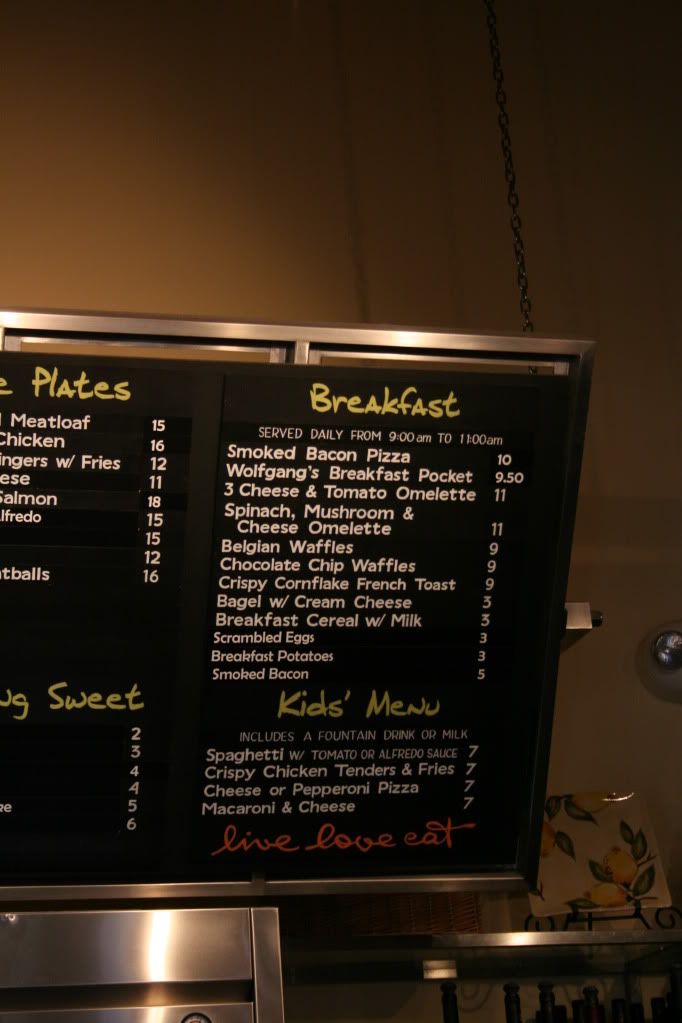 e Plates
Meatloaf 15
Chicken 16
ingers w/ Fries 12
ese 11
Salmon 18
lfredo 15
15
12
tballs 16
ng Sweet
2
3
4
4
re 5
6
Breakfast
SERVED DAILY FROM 9:00 am TO 11:00 am
Smoked Bacon Pizza 10
Wolfgang's Breakfast Pocket 9.50
3 Cheese & Tomato Omelette 11
Spinach, Mushroom &
Cheese Omelette 11
Belgian Waffles 9
Chocolate Chip Waffles 9
Crispy Cornflake French Toast 9
Bagel w/ Cream Cheese 3
Breakfast Cereal w/ Milk 3
Scrambled Eggs 3
Breakfast Potatoes 3
Smoked Bacon 5
Kids' Menu
INCLUDES A FOUNTAIN DRINK OR MILK
Spaghetti W/ TOMATO OR ALFREDO SAUCE 7
Crispy Chicken Tenders & Fries 7
Cheese or Pepperoni Pizza 7
Macaroni & Cheese 7
live love eat